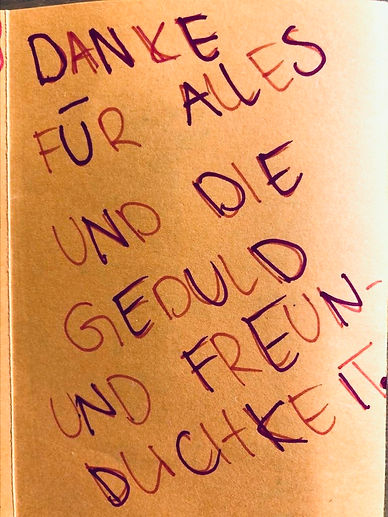 DANKE
FÜR ALLES
UND DIE
GEDULD
UND FREUN-
DLICHKEIT.